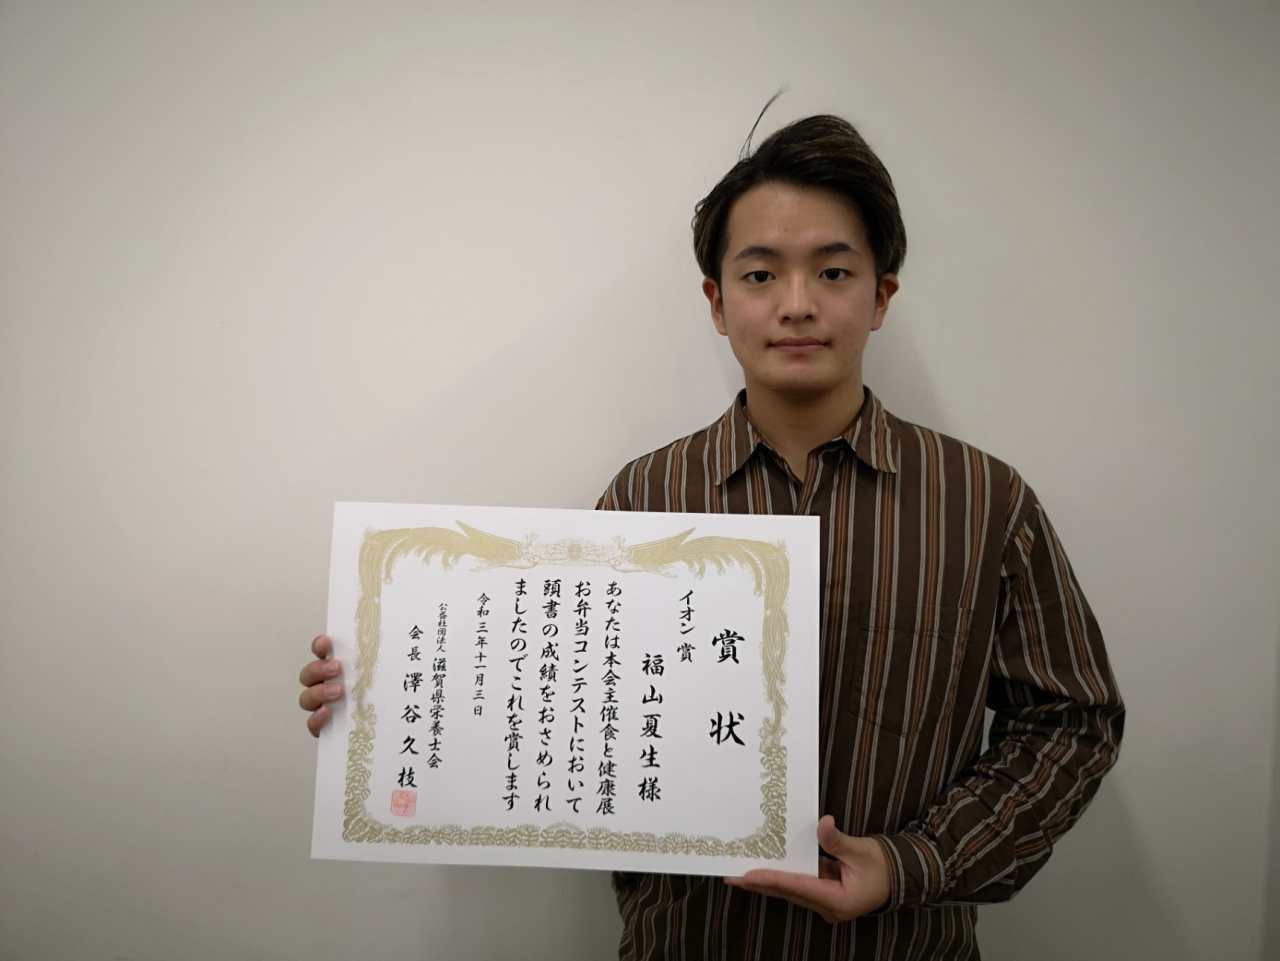 賞状
イオン賞
福山夏生様
あなたは本会主催食と健康展
お弁当コンテストにおいて
頭書の成績をおさめられ
ましたのでこれを賞します
令和三年十一月三日
公益社団法人 滋賀県栄養士会
会長 澤谷久枝